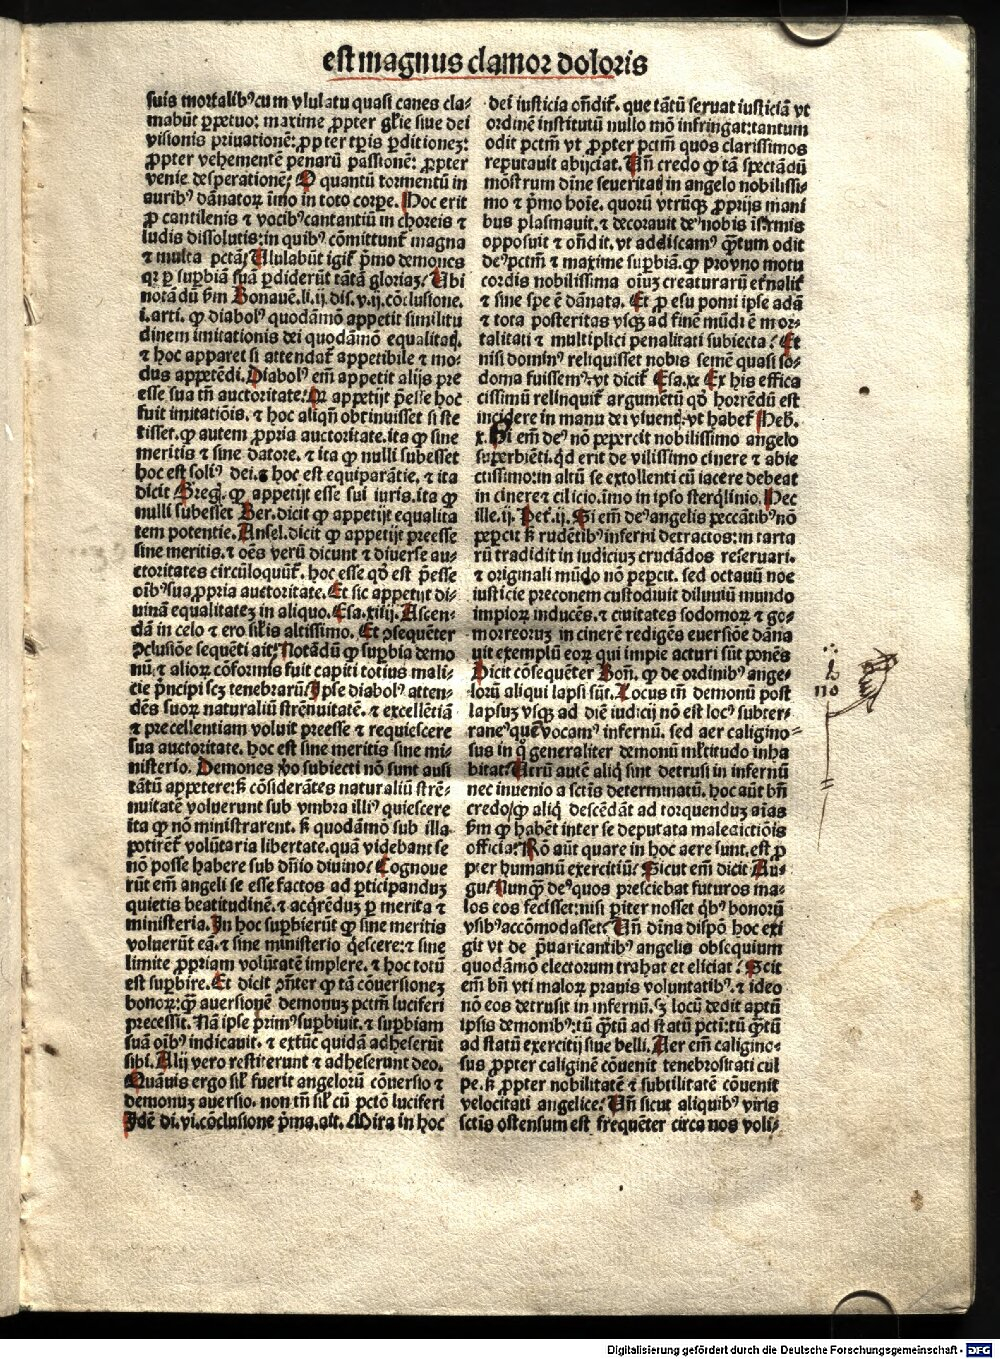 est magnus clamor doloris
suis mortalibꝰ cum vlulatu quasi canes cla⸗
mabūt ꝑpetuo: maxime ꝓpter gl̄ie siue dei
visionis priuationē: ꝓpter tꝑis ꝑditionez:
ꝓpter vehementē penarū passionē: ꝓpter
venie desperationē. O quantū tormentū in
auribꝰ dānatoꝝ īmo in toto corpe. Hoc erit
ꝓ cantilenis ⁊ vocibꝰ cantantiū in choreis ⁊
ludis dissolutis: in quibꝰ cōmittunt᷑ magna
⁊ multa pctā. Ululabūt igit᷑ p̄mo demones
qꝛ ꝑ suꝑbiā suā ꝑdiderūt tātā gloriaz. Ubi
notādū ẜm Bonauē. li. ij. dis. v. ij. cōclusione.
i. arti. ꝙ diabolꝰ quodāmō appetit similitu
dinem imitationis dei quodāmō equalitatꝭ.
⁊ hoc apparet si attendat᷑ appetibile ⁊ mo⸗
dus appetēdi. Diabolꝰ em̄ appetit alijs pre
esse sua tn̄ auctoritate. Qꝛ appetijt p̄esse hoc
fuit imitatiōis. ⁊ hoc aliqn̄ obtinuisset si ste
tisset. ꝙ autem ꝓpria auctoritate. ita ꝙ sine
meritis ⁊ sine datore. ⁊ ita ꝙ nulli subesset
hoc est soliꝰ dei. ⁊ hoc est equiparātie. ⁊ ita
dicit Greg. ꝙ appetijt esse sui iuris. ita ꝙ
nulli subesset Ber. dicit ꝙ appetijt equalita
tem potentie. Ansel. dicit ꝙ appetijt preesse
sine meritis. ⁊ oēs verū dicunt ⁊ diuerse au⸗
ctoritates circūloquūt᷑. hoc esse qđ est p̄esse
oībꝰ sua ꝓpria auctoritate. Et sic appetijt di⸗
uinā equalitatez in aliquo. Esa. xiiij. Ascen⸗
dā in celo ⁊ ero sil̄is altissimo. Et ꝯsequēter
ꝯclusiōe sequēti ait. Notādū ꝙ suꝑbia demo
nū ⁊ alioꝝ cōformis fuit capiti totius mali⸗
cie p̄ncipi scꝫ tenebrarū. Ipse diabolꝰ atten⸗
dēs suoꝝ naturaliū strēnuitatē. ⁊ excellētiā
⁊ precellentiam voluit preesse ⁊ requiescere
sua auctoritate. hoc est sine meritis sine mi⸗
nisterio. Demones ꝟo subiecti nō sunt ausi
tātū appetere: sꝫ cōsiderātes naturaliū strē⸗
nuitatē voluerunt sub vmbra illiꝰ quiescere
ita ꝙ nō ministrarent. sꝫ quodāmō sub illa
potirēt᷑ volūtaria libertate. quā videbant se
nō posse habere sub dn̄io diuino. Cognoue
rūt em̄ angeli se esse factos ad ꝑticipanduz
quietis beatitudinē. ⁊ acq̄rēduz ꝑ merita ⁊
ministeria. In hoc suꝑbierūt ꝙ sine meritis
voluerūt eā. ⁊ sine ministerio q̄escere: ⁊ sine
limite ꝓpriam volūtatē implere. ⁊ hoc totū
est suꝑbire. Et dicit ꝯn̄ter ꝙ tā cōuersionez
bonoꝝ: ꝙ̄ auersionē demonuz pctm̄ luciferi
precessit. Nā ipse primꝰ suꝑbiuit. ⁊ suꝑbiam
suā oībꝰ indicauit. ⁊ extūc quidā adheserūt
sibi. Alij vero restiterunt ⁊ adheserunt deo.
Quāuis ergo sil̄ fuerit angelorū cōuersio ⁊
demonuz auersio. non tn̄ sil̄ cū pctō luciferi
Idē di. vi. cōclusione p̄ma. ait. Mira in hoc
dei iusticia on̄dit᷑. que tātū seruat iusticiā vt
ordinē institutū nullo mō infringat: tantum
odit pctm̄ vt ꝓpter pctm̄ quos clarissimos
reputauit abijciat. Un̄ credo ꝙ tā spectādū
mōstrum dīne seueritatis in angelo nobilissi⸗
mo ⁊ p̄mo hoīe. quorū vtrūqꝫ ꝓprijs mani
bus plasmauit. ⁊ decorauit deꝰ nobis īfirmis
opposuit ⁊ on̄dit. vt addiscamꝰ q̄tum odit
deꝰ pctm̄ ⁊ maxime suꝑbiā. ꝙ pro vno motu
cordis nobilissima oīuz creaturarū et̄nalit᷑
⁊ sine spe ē dānata. Et ꝓ esu pomi ipse adā
⁊ tota posteritas vsqꝫ ad finē mūdi ē mor⸗
talitati ⁊ multiplici penalitati subiecta. Et
nisi dominꝰ reliquisset nobis semē quasi so⸗
doma fuissemꝰ. vt dicit᷑ Esa. xx Ex his effica
cissimū relinquit᷑ argumētū qđ horrēdū est
incidere in manu dei viuentꝭ. vt habet᷑ Heb.
x. Si em̄ deꝰ nō pepercit nobilissimo angelo
suꝑbiēti. qd erit de vilissimo cinere ⁊ abie
ctissimo: in altū se extollenti cū iacere debeat
in cinere ⁊ cilicio. īmo in ipso sterq̄linio. Hec
ille. ij. Pet᷑. ij. Si em̄ deꝰ angelis peccātibꝰ nō
peꝑcit sꝫ rudētibꝰ inferni detractos: in tarta
rū tradidit in iudiciuz cruciādos reseruari.
⁊ originali mūdo nō peꝑcit. sed octauū noe
iusticie preconem custodiuit diluuiū mundo
impioꝝ inducēs. ⁊ ciuitates sodomoꝝ ⁊ go⸗
morreoruz in cinerē redigēs euersiōe dāna
uit exemplū eoꝝ qui impie acturi sūt ponēs
Dicit cōsequēter Bon̄. ꝙ de ordinibꝰ ange⸗
lorū aliqui lapsi sūt. Locus tn̄ demonū post
lapsuz vsqꝫ ad diē iudicij nō est locꝰ subter⸗
raneꝰ quē vocamꝰ infernū. sed aer caligino⸗
sus in q̊ generaliter demonū ml̄titudo inha
bitat. Utrū autē aliq̄ sint detrusi in infernū
nec inuenio a sctīs determinatū. hoc aūt bn̄
credo ꝙ aliq̄ descēdāt ad torquenduz aīas
ẜm ꝙ habēt inter se deputata maledictiōis
officia. Rō aūt quare in hoc aere sunt. est ꝓ
pter humanū exercitiū. Sicut em̄ dicit Au⸗
gu. Nunq̄ deꝰ quos presciebat futuros ma⸗
los eos fecisset: nisi ꝑiter nosset qͥbꝰ bonorū
vsibꝰ accōmodasset. Un̄ dīna dispō hoc exi
git vt de p̄uaricantibꝰ angelis obsequium
quodāmo electorum trahat et eliciat. Scit
em̄ bn̄ vti maloꝝ prauis voluntatibꝰ. ⁊ ideo
nō eos detrusit in infernū. sꝫ locū dedit aꝑtū
ipsis demonibꝰ: tū q̄tū ad statū pcti: tū q̄tū
ad statū exercitij siue belli. Aer em̄ caligino⸗
sus ꝓpter caliginē cōuenit tenebrositati cul
pe. sꝫ ꝓpter nobilitatē ⁊ subtilitatē cōuenit
velocitati angelice. Un̄ sicut aliquibꝰ viris
sctīs ostensum est frequēter circa nos voli⸗
no
Digitalisierung gefördert durch die Deutsche Forschungsgemeinschaft - DFG